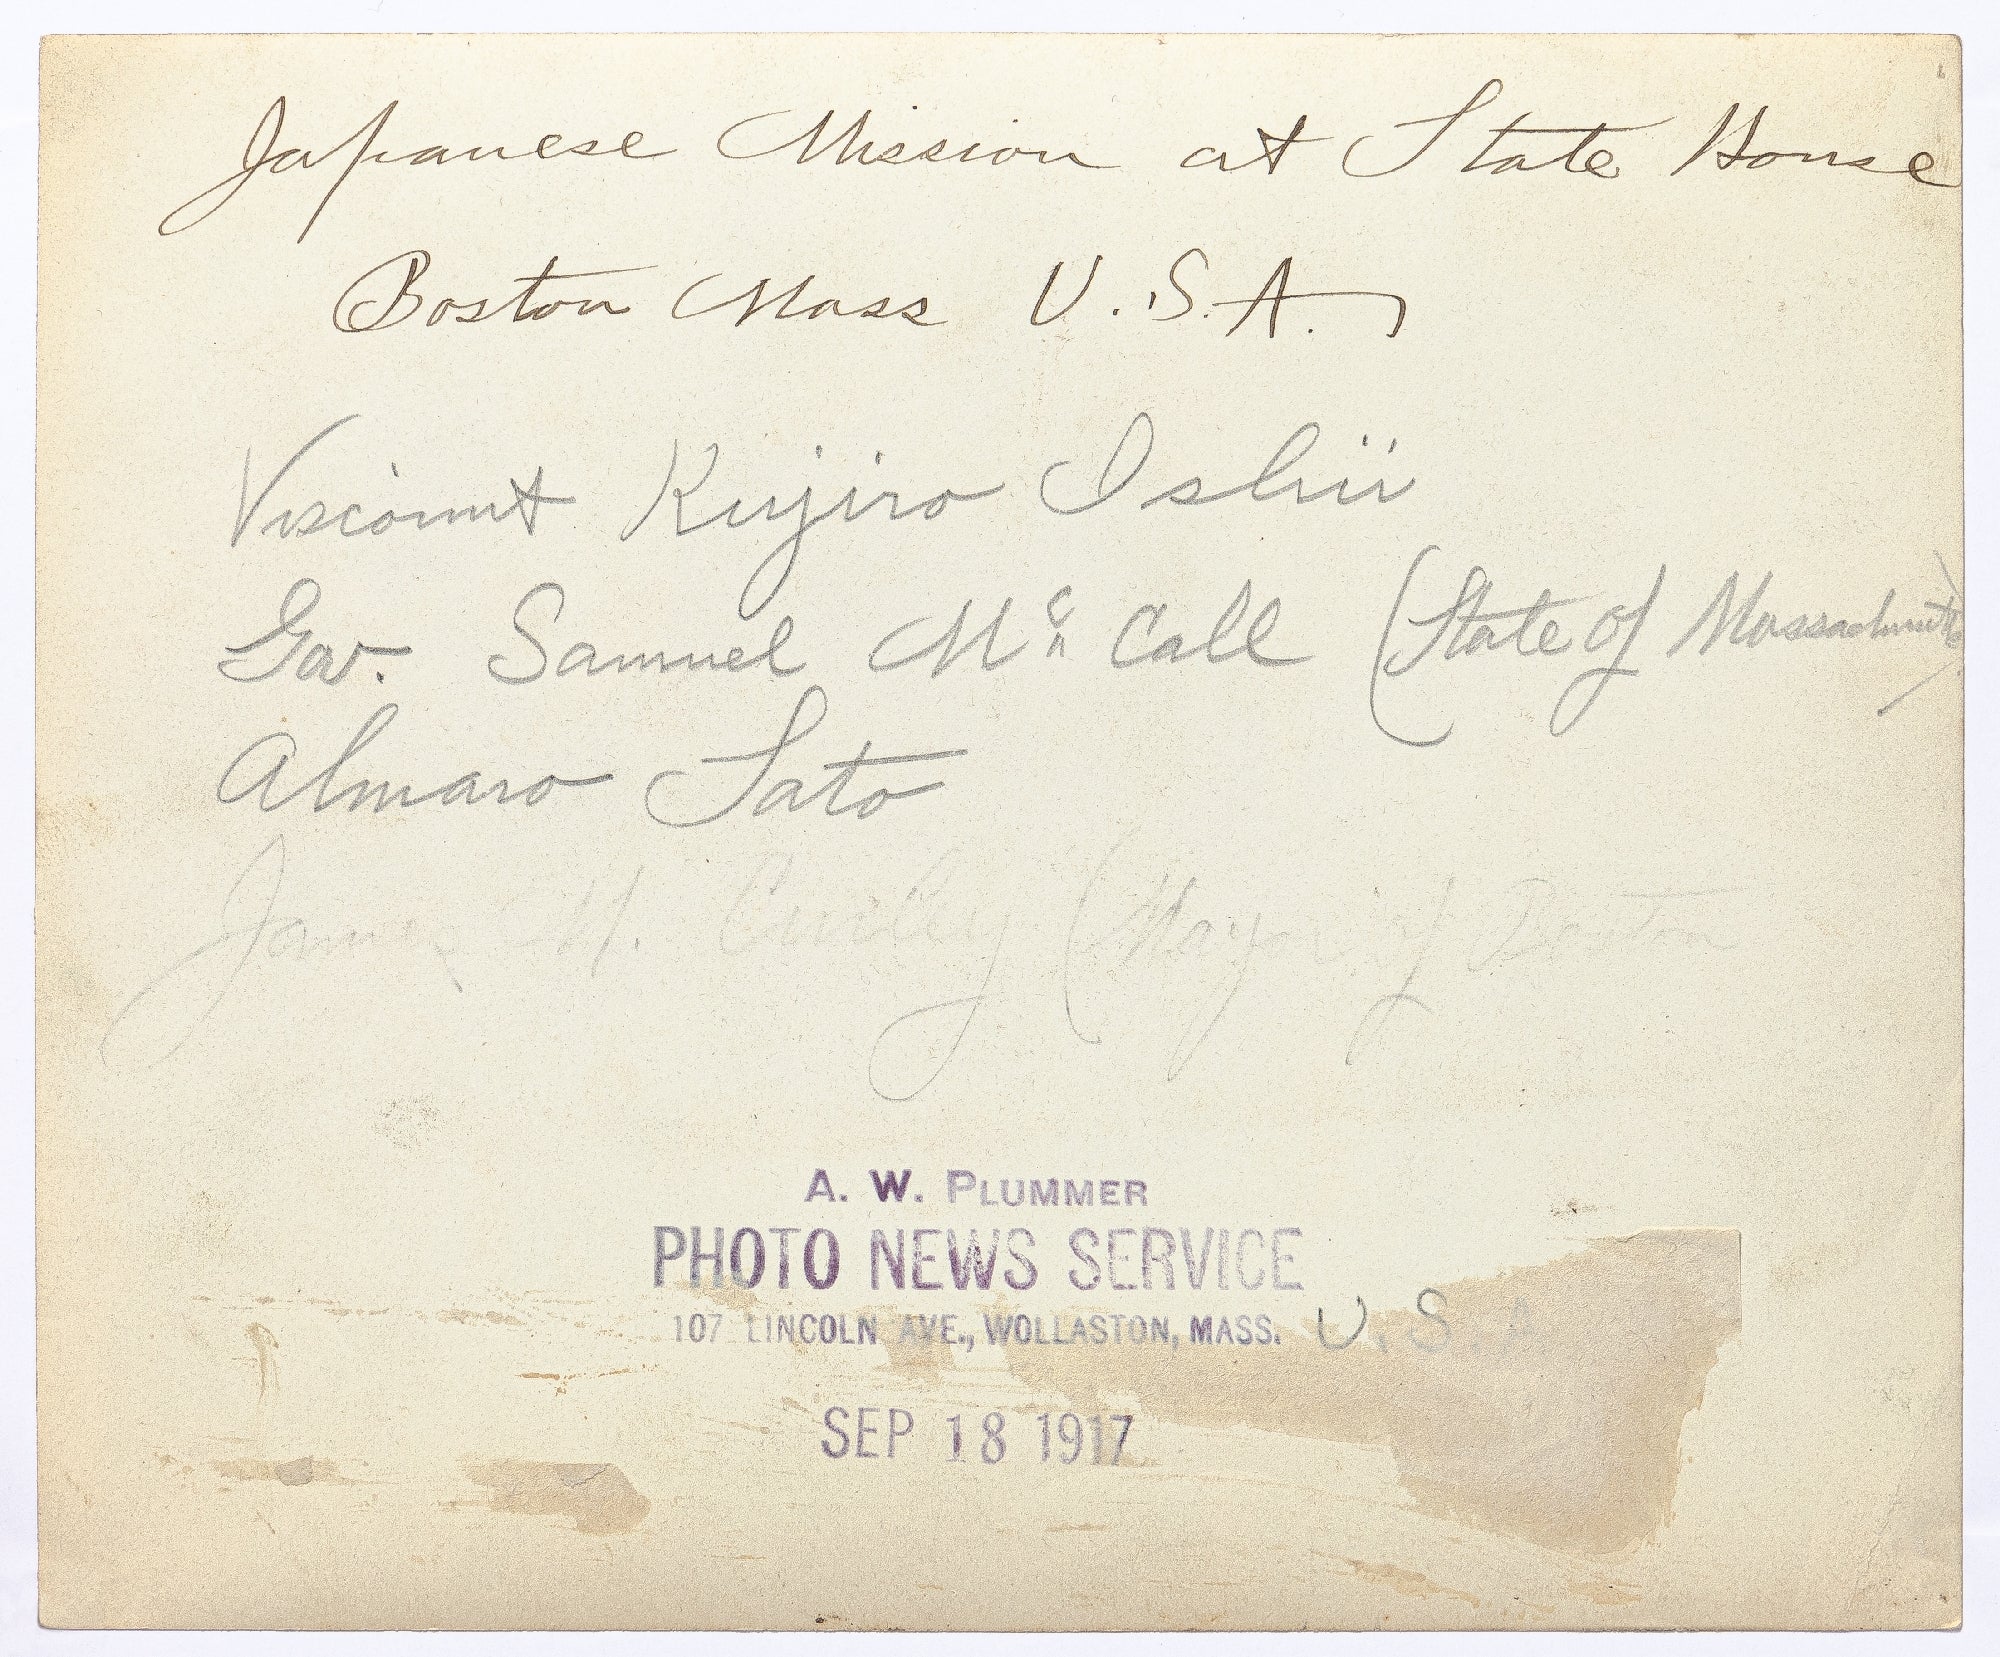 Japanese Mission at State House
Boston Mass U.S.A.
Viscount Kujiro Ishii
Gov. Samuel Mc Call (State of Massachusetts)
Almaro Sato
James M. Curley (Mayor of Boston
A. W. PLUMMER
PHOTO NEWS SERVICE
107 LINCOLN AVE., WOLLASTON, MASS. U.S.A.
SEP 18 1917